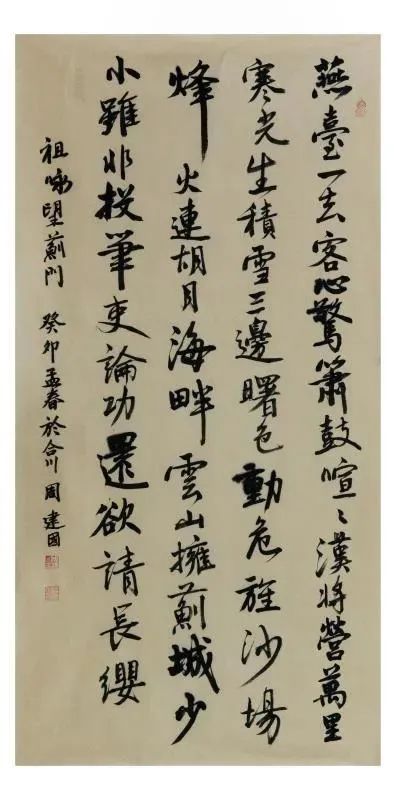 燕臺一去客心驚簫鼓喧〻漢將營萬里
寒光生積雪三邊曙色動危旌沙場
烽火連胡月海畔雲山擁薊城少
小雖非投筆吏論功還欲請長纓
祖咏望薊門 癸卯孟春於合川 周建國